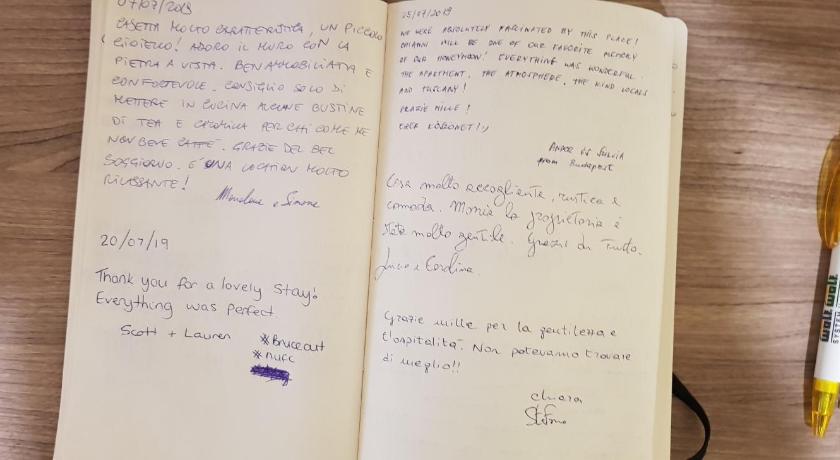 07/07/2019
CASETTA MOLTO CARATTERISTICA, UN PICCOLO
GIOIELLO! ADORO IL MURO CON LA
PIETRA A VISTA. BEN AMMOBILIATA E
CONFORTEVOLE. CONSIGLIO SOLO DI
METTERE IN CUCINA ALCUNE BUSTINE
DI TEA E CAMOMILLA PER CHI COME ME
NON BEVE CAFFÈ. GRAZIE DEL BEL
SOGGIORNO. E' UNA LOCATION MOLTO
RILASSANTE!
e Simone
20/07/19
Thank you for a lovely stay!
Everything was perfect
Scott + Lauren
*Bruceout
*nufc
25/07/2019
WE WERE ABSOLUTELY FASCINATED BY THIS PLACE!
WILL BE ONE OF OUR FAVORITE MEMORY
OF OUR HONEYMOON! EVERYTHING WAS WONDERFUL:
THE APARTMENT, THE ATMOSPHERE, THE KIND LOCALS
AND TUSCANY!
GRAZIE MILLE!
ANDOR ÉS SYLVIA
from Budapest
Casa molto accogliente, rustica e
comoda. la proprietaria è
stata molto gentile. Grazie di tutto.
Grazie mille per la gentilezza e
l'ospitalità. Non potevamo trovare
di meglio!!
Chiara
Stefano
SYSTEM